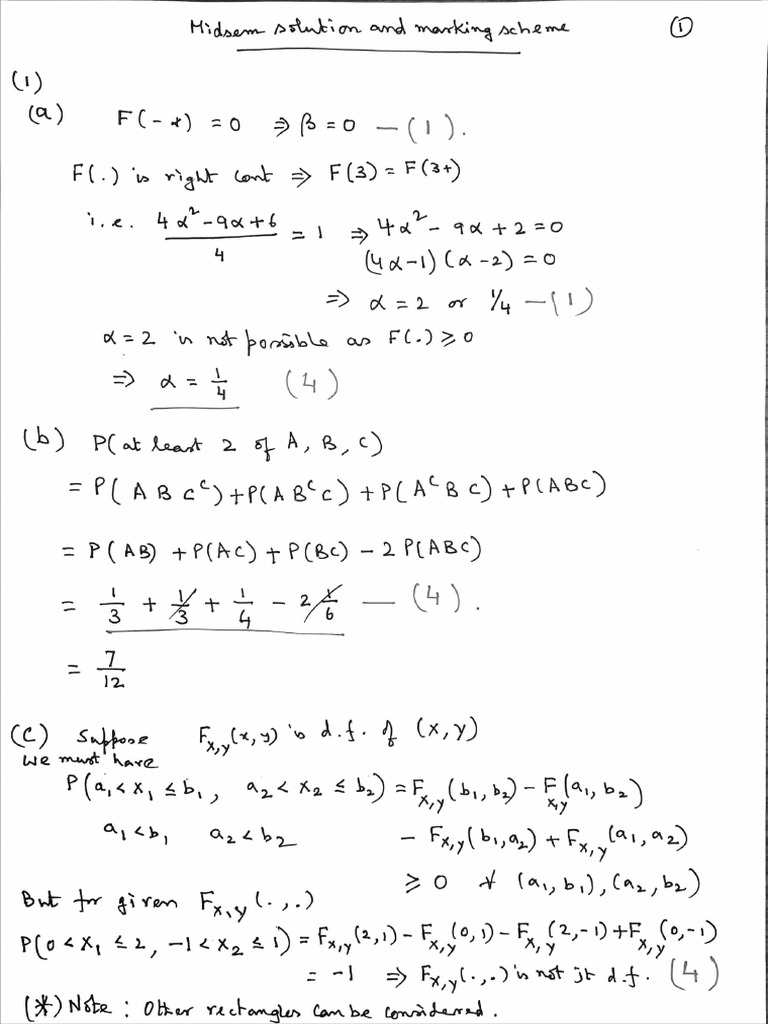 Midsem solution and marking scheme ①
(1)
(a) F(-∝) = 0 ⇒ β = 0 — (1).
F(.) is right cont ⇒ F(3) = F(3+)
i.e. (4α² - 9α + 6)/4 = 1 ⇒ 4α² - 9α + 2 = 0
(4α-1)(α-2) = 0
⇒ α = 2 or 1/4 — (1)
α = 2 is not possible as F(.) ≥ 0
⇒ α = 1/4 (4)
(b) P(at least 2 of A, B, C)
= P(A B Cᶜ) + P(A Bᶜ C) + P(Aᶜ B C) + P(ABC)
= P(AB) + P(AC) + P(BC) - 2 P(ABC)
= 1/3 + 1/3 + 1/4 - 2 1/6 — (4).
= 7/12
(C) Suppose F_{X,Y}(x,y) is d.f. of (X,Y)
We must have
P(a₁ < X₁ ≤ b₁, a₂ < X₂ ≤ b₂) = F_{X,Y}(b₁, b₂) - F_{X,Y}(a₁, b₂)
a₁ < b₁ a₂ < b₂ - F_{X,Y}(b₁, a₂) + F_{X,Y}(a₁, a₂)
≥ 0 ∀ (a₁, b₁), (a₂, b₂)
But for given F_{X,Y}(.,.)
P(0 < X₁ ≤ 2, -1 < X₂ ≤ 1) = F_{X,Y}(2,1) - F_{X,Y}(0,1) - F_{X,Y}(2,-1) + F_{X,Y}(0,-1)
= -1 ⇒ F_{X,Y}(.,.) is not jt d.f. (4)
(*) Note : Other rectangles can be considered.